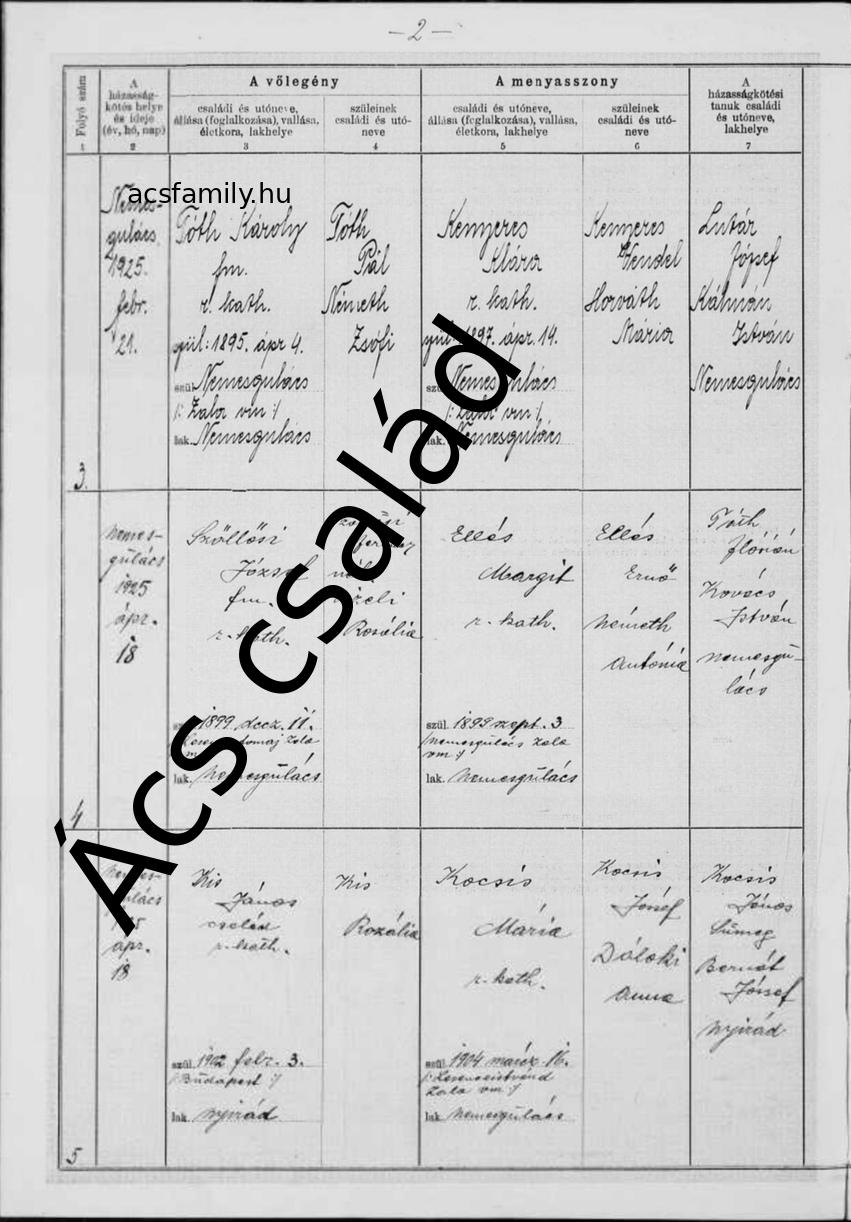 - 2 -
Folyó szám
1
A
házasság-
kötés helye
és ideje
(év, hó, nap)
2
A vőlegény
családi és utóneve,
állása (foglalkozása), vallása,
életkora, lakhelye
3
szüleinek
családi és utó-
neve
4
A menyasszony
családi és utóneve,
állása (foglalkozása), vallása,
életkora, lakhelye
5
szüleinek
családi és utó-
neve
6
A
házasságkötési
tanuk családi
és utóneve,
lakhelye
7
acsfamily.hu
Ács család
3.
Nemes-
gulács
1925.
febr.
21.
Tóth Károly
fm.
r. kath.
szül: 1895. ápr 4.
szül. Nemesgulács
/: Zala vm :/
lak. Nemesgulács
Tóth
Pál
Németh
Zsófi
Kenyeres
Klára
r. kath.
1897. ápr. 14.
Nemesgulács
/: Zala vm :/
lak. Nemesgulács
Kenyeres
Vendel
Horváth
Mária
Lutár
József
Kálmán
István
Nemesgulács
4
Nemes-
gulács
1925
ápr.
18
Szöllősi
József
fm.
r. kath.
1899 decz. 11.
lak. Nemesgulács
Rozália
Ellés
Margit
r. kath.
szül. 1899 szept. 3
/Nemesgulács Zala
vm :/
lak. Nemesgulács
Ellés
Ernő
Németh
Antónia
Tóth
Flórián
Kovács
István
Nemesgu-
lács
5
Nemes-
gulács
ápr.
18
Kis
János
cseléd
r. kath.
szül. 1902 febr. 3.
/: Budapest :/
lak. Nyirád
Kis
Rozália
Kocsis
Mária
r. kath.
szül. 1904 márcz. 16.
/: Lesenceistvánd
Zala vm :/
lak. Nemesgulács
Kocsis
József
Anna
Kocsis
János
Sümeg
Bernát
József
Nyirád